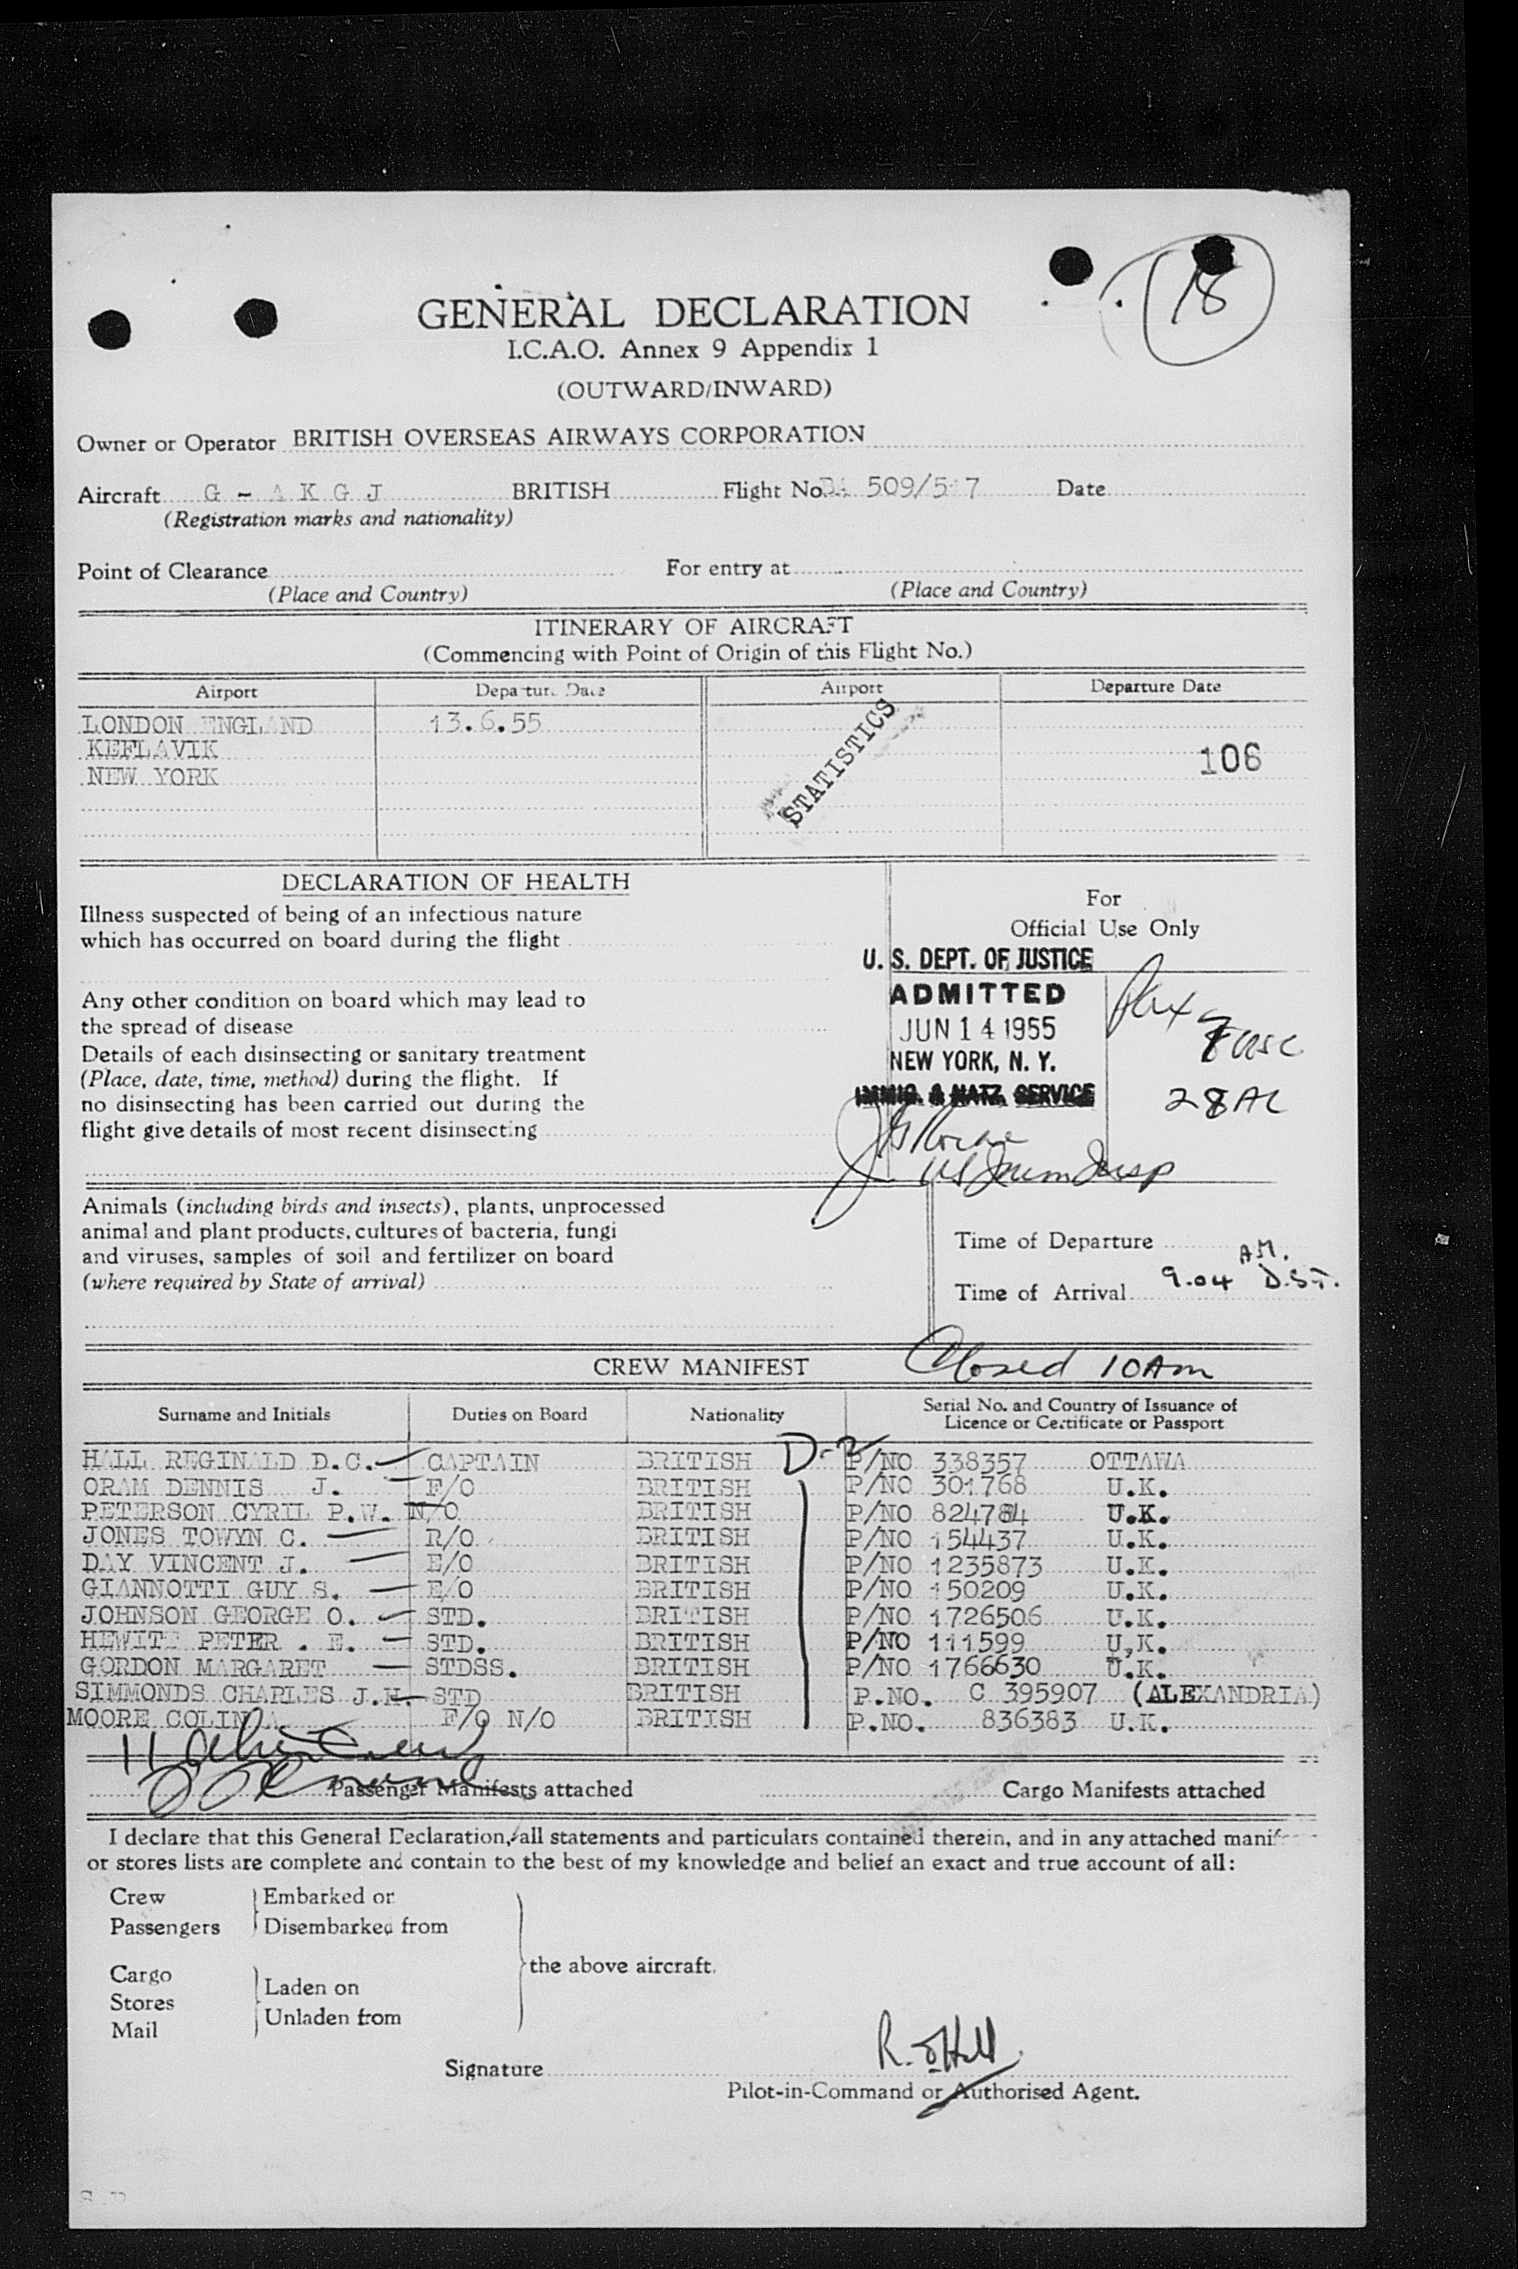 18
GENERAL DECLARATION
I.C.A.O. Annex 9 Appendix 1
(OUTWARD/INWARD)
Owner or Operator BRITISH OVERSEAS AIRWAYS CORPORATION
Aircraft G - A K G J BRITISH Flight No. 509/5 7 Date
(Registration marks and nationality)
Point of Clearance For entry at
(Place and Country) (Place and Country)
ITINERARY OF AIRCRAFT
(Commencing with Point of Origin of this Flight No.)
Airport Departure Date Airport Departure Date
LONDON ENGLAND 13.6.55
KEFLAVIK
NEW YORK
STATISTICS
106
DECLARATION OF HEALTH
Illness suspected of being of an infectious nature
which has occurred on board during the flight
Any other condition on board which may lead to
the spread of disease
Details of each disinsecting or sanitary treatment
(Place, date, time, method) during the flight. If
no disinsecting has been carried out during the
flight give details of most recent disinsecting
For
Official Use Only
U. S. DEPT. OF JUSTICE
ADMITTED
JUN 14 1955
NEW YORK, N. Y.
IMMIG. & NATZ. SERVICE
28 AL
US Imm Insp
Animals (including birds and insects), plants, unprocessed
animal and plant products, cultures of bacteria, fungi
and viruses, samples of soil and fertilizer on board
(where required by State of arrival)
Time of Departure
Time of Arrival 9.04 A.M. D.S.T.
Closed 10 Am
CREW MANIFEST
Surname and Initials Duties on Board Nationality Serial No. and Country of Issuance of Licence or Certificate or Passport
HALL REGINALD D.C. CAPTAIN BRITISH D-2 P/NO 338357 OTTAWA
ORAM DENNIS J. F/O BRITISH P/NO 301768 U.K.
PETERSON CYRIL P.W. N/O BRITISH P/NO 824784 U.K.
JONES TOWYN C. R/O BRITISH P/NO 154437 U.K.
DAY VINCENT J. E/O BRITISH P/NO 1235873 U.K.
GIANNOTTI GUY S. E/O BRITISH P/NO 150209 U.K.
JOHNSON GEORGE O. STD. BRITISH P/NO 1726506 U.K.
HEWITT PETER . E. STD. BRITISH P/NO 111599 U,K.
GORDON MARGARET STDSS. BRITISH P/NO 1766630 U.K.
SIMMONDS CHARLES J.H. STD BRITISH P.NO. C 395907 (ALEXANDRIA)
MOORE COLIN A F/O N/O BRITISH P.NO. 836383 U.K.
11
Passenger Manifests attached Cargo Manifests attached
I declare that this General Declaration, all statements and particulars contained therein, and in any attached
or stores lists are complete and contain to the best of my knowledge and belief an exact and true account of all:
Crew Embarked or
Passengers Disembarked from
the above aircraft.
Cargo Laden on
Stores
Mail Unladen from
Signature
Pilot-in-Command or Authorised Agent.